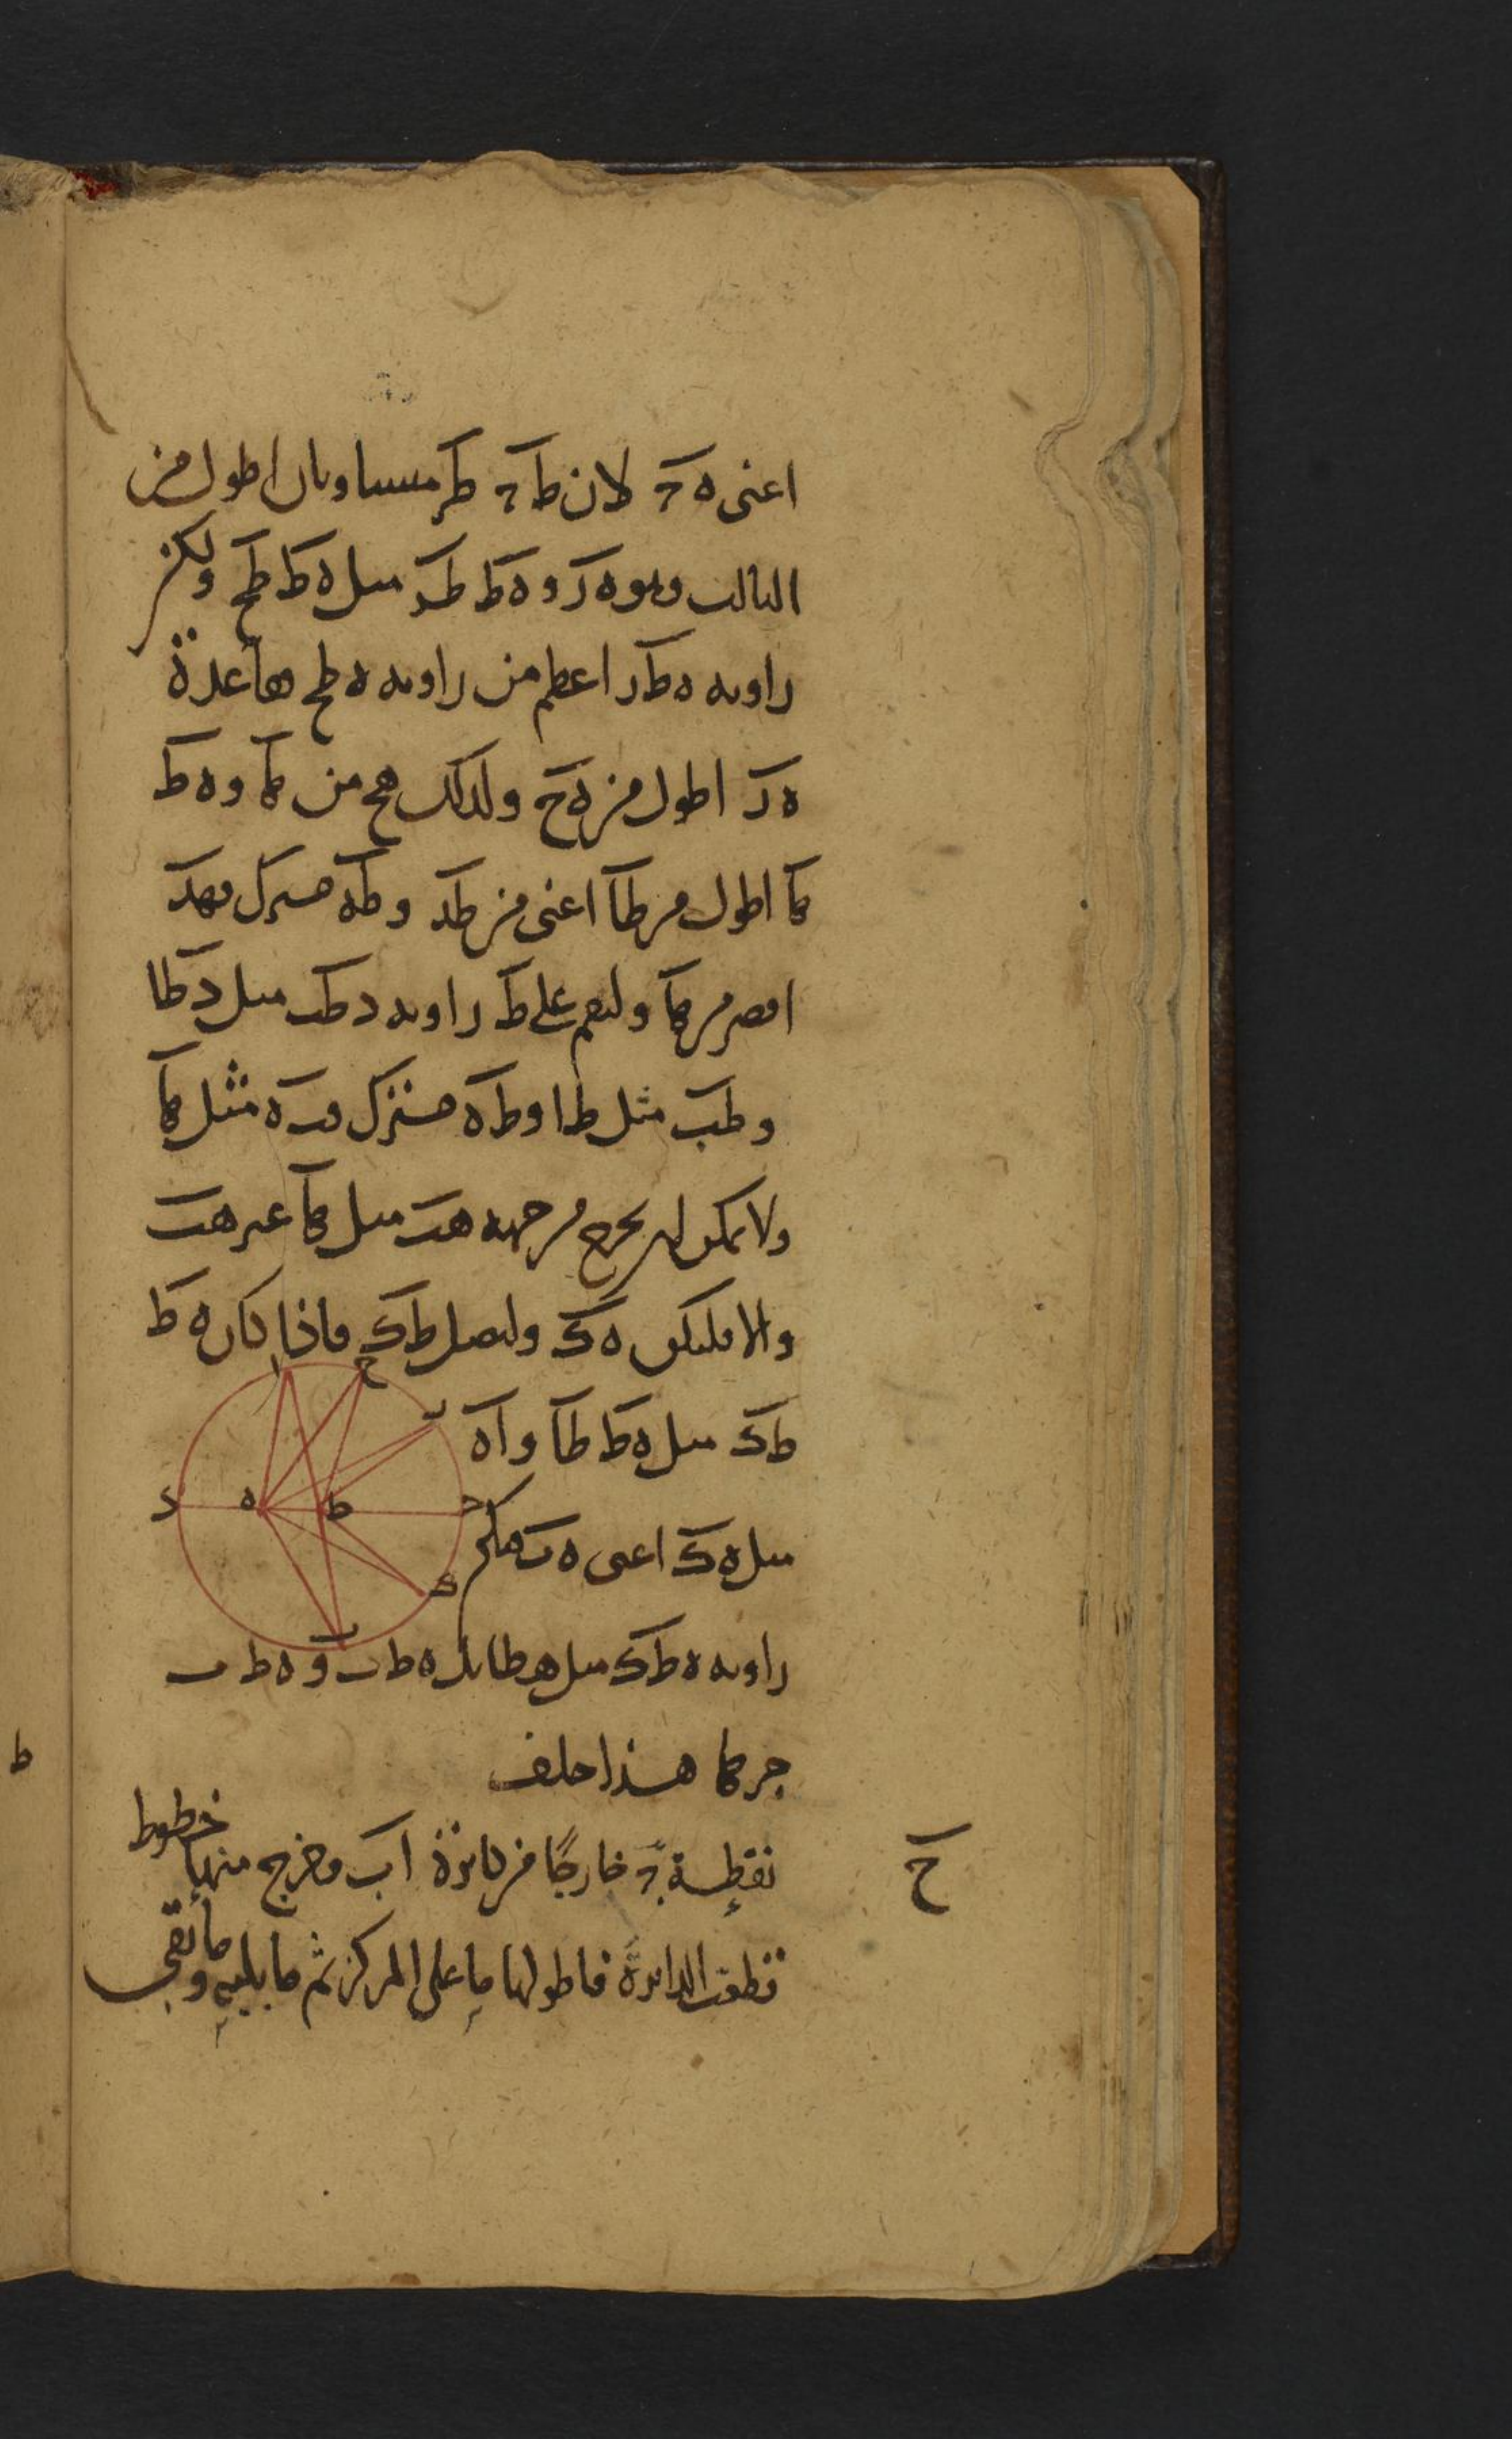 اعنى ه ج لان ط ج ط ر مساويان اطول من
الثالث وهو ه ر و ه ط ط ر مثل ه ط ط ح ولكن
زاويه ه ط ر اعظم من زاويه ه ط ح فقاعدة
ه ر اطول من ه ح ولذلك ه ح من ه ا و ه ط
ه ا اطول من ط ا اعنى من ط د و ط ه مشترك فهد
اقصر من ه ا ولنقم على ط زاويه د ط ب مثل د ط ا
و ط ب مثل ط ا و ط ه مشترك فب ه مثل ه ا
ولا يمكن ان يخرج من جهه ه ب مثل ه ا غير ه ب
والا فليكن ه ك ولنصل ط ك فاذا كان ه ط
ط ك مثل ه ط ط ا و ا ه
مثل ه ك اعنى ه ب فتكن
زاويه ه ط ك مثل ه ط ا بل ه ط ب و ه ط ب
جركا هذا خلف
ح
نقطة ج خارجًا من دائرة اب وخرج منها خطوط
قطعت الدائرة فاطولها ما على المركز ثم ما يليه وما بقى
ا
ح
ر
ج
ط
ه
د
ك
ب
ط